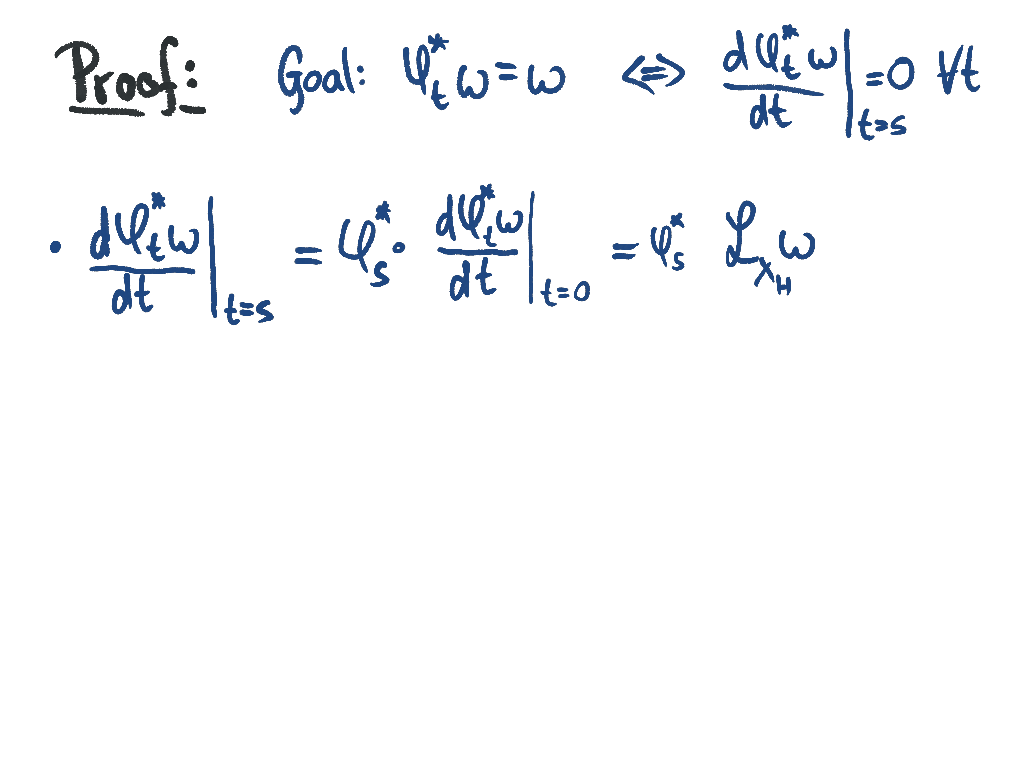 Proof: Goal: φ_t^* ω = ω ⇔ dφ_t^* ω / dt |_{t=s} = 0 ∀t
• dφ_t^* ω / dt |_{t=s} = φ_s^* · dφ_t^* ω / dt |_{t=0} = φ_s^* ℒ_{X_H} ω